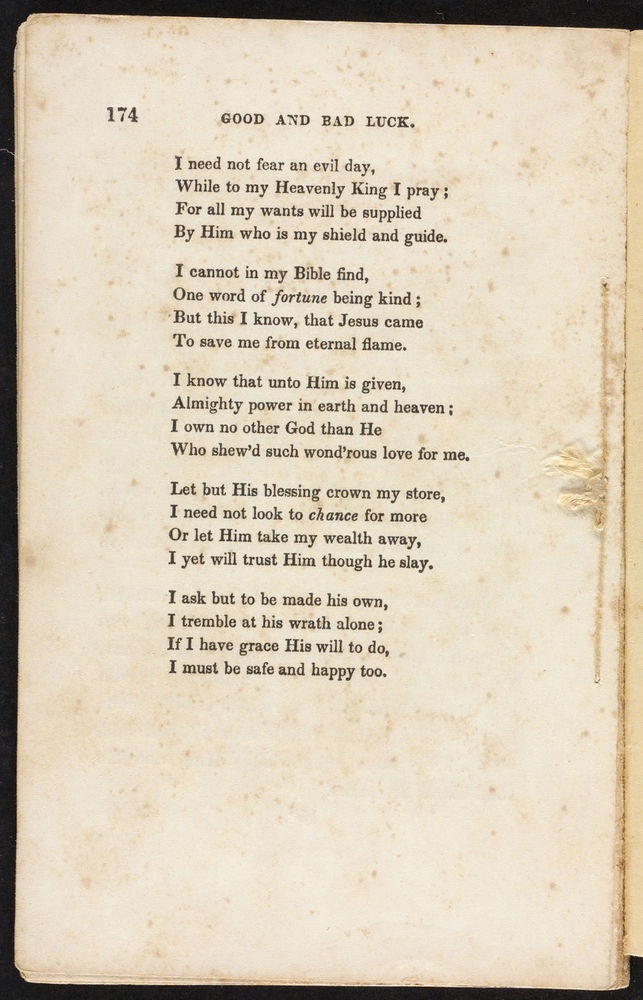 174
GOOD AND BAD LUCK.
I need not fear an evil day,
While to my Heavenly King I pray ;
For all my wants will be supplied
By Him who is my shield and guide.
I cannot in my Bible find,
One word of fortune being kind ;
But this I know, that Jesus came
To save me from eternal flame.
I know that unto Him is given,
Almighty power in earth and heaven ;
I own no other God than He
Who shew'd such wond'rous love for me.
Let but His blessing crown my store,
I need not look to chance for more
Or let Him take my wealth away,
I yet will trust Him though he slay.
I ask but to be made his own,
I tremble at his wrath alone ;
If I have grace His will to do,
I must be safe and happy too.